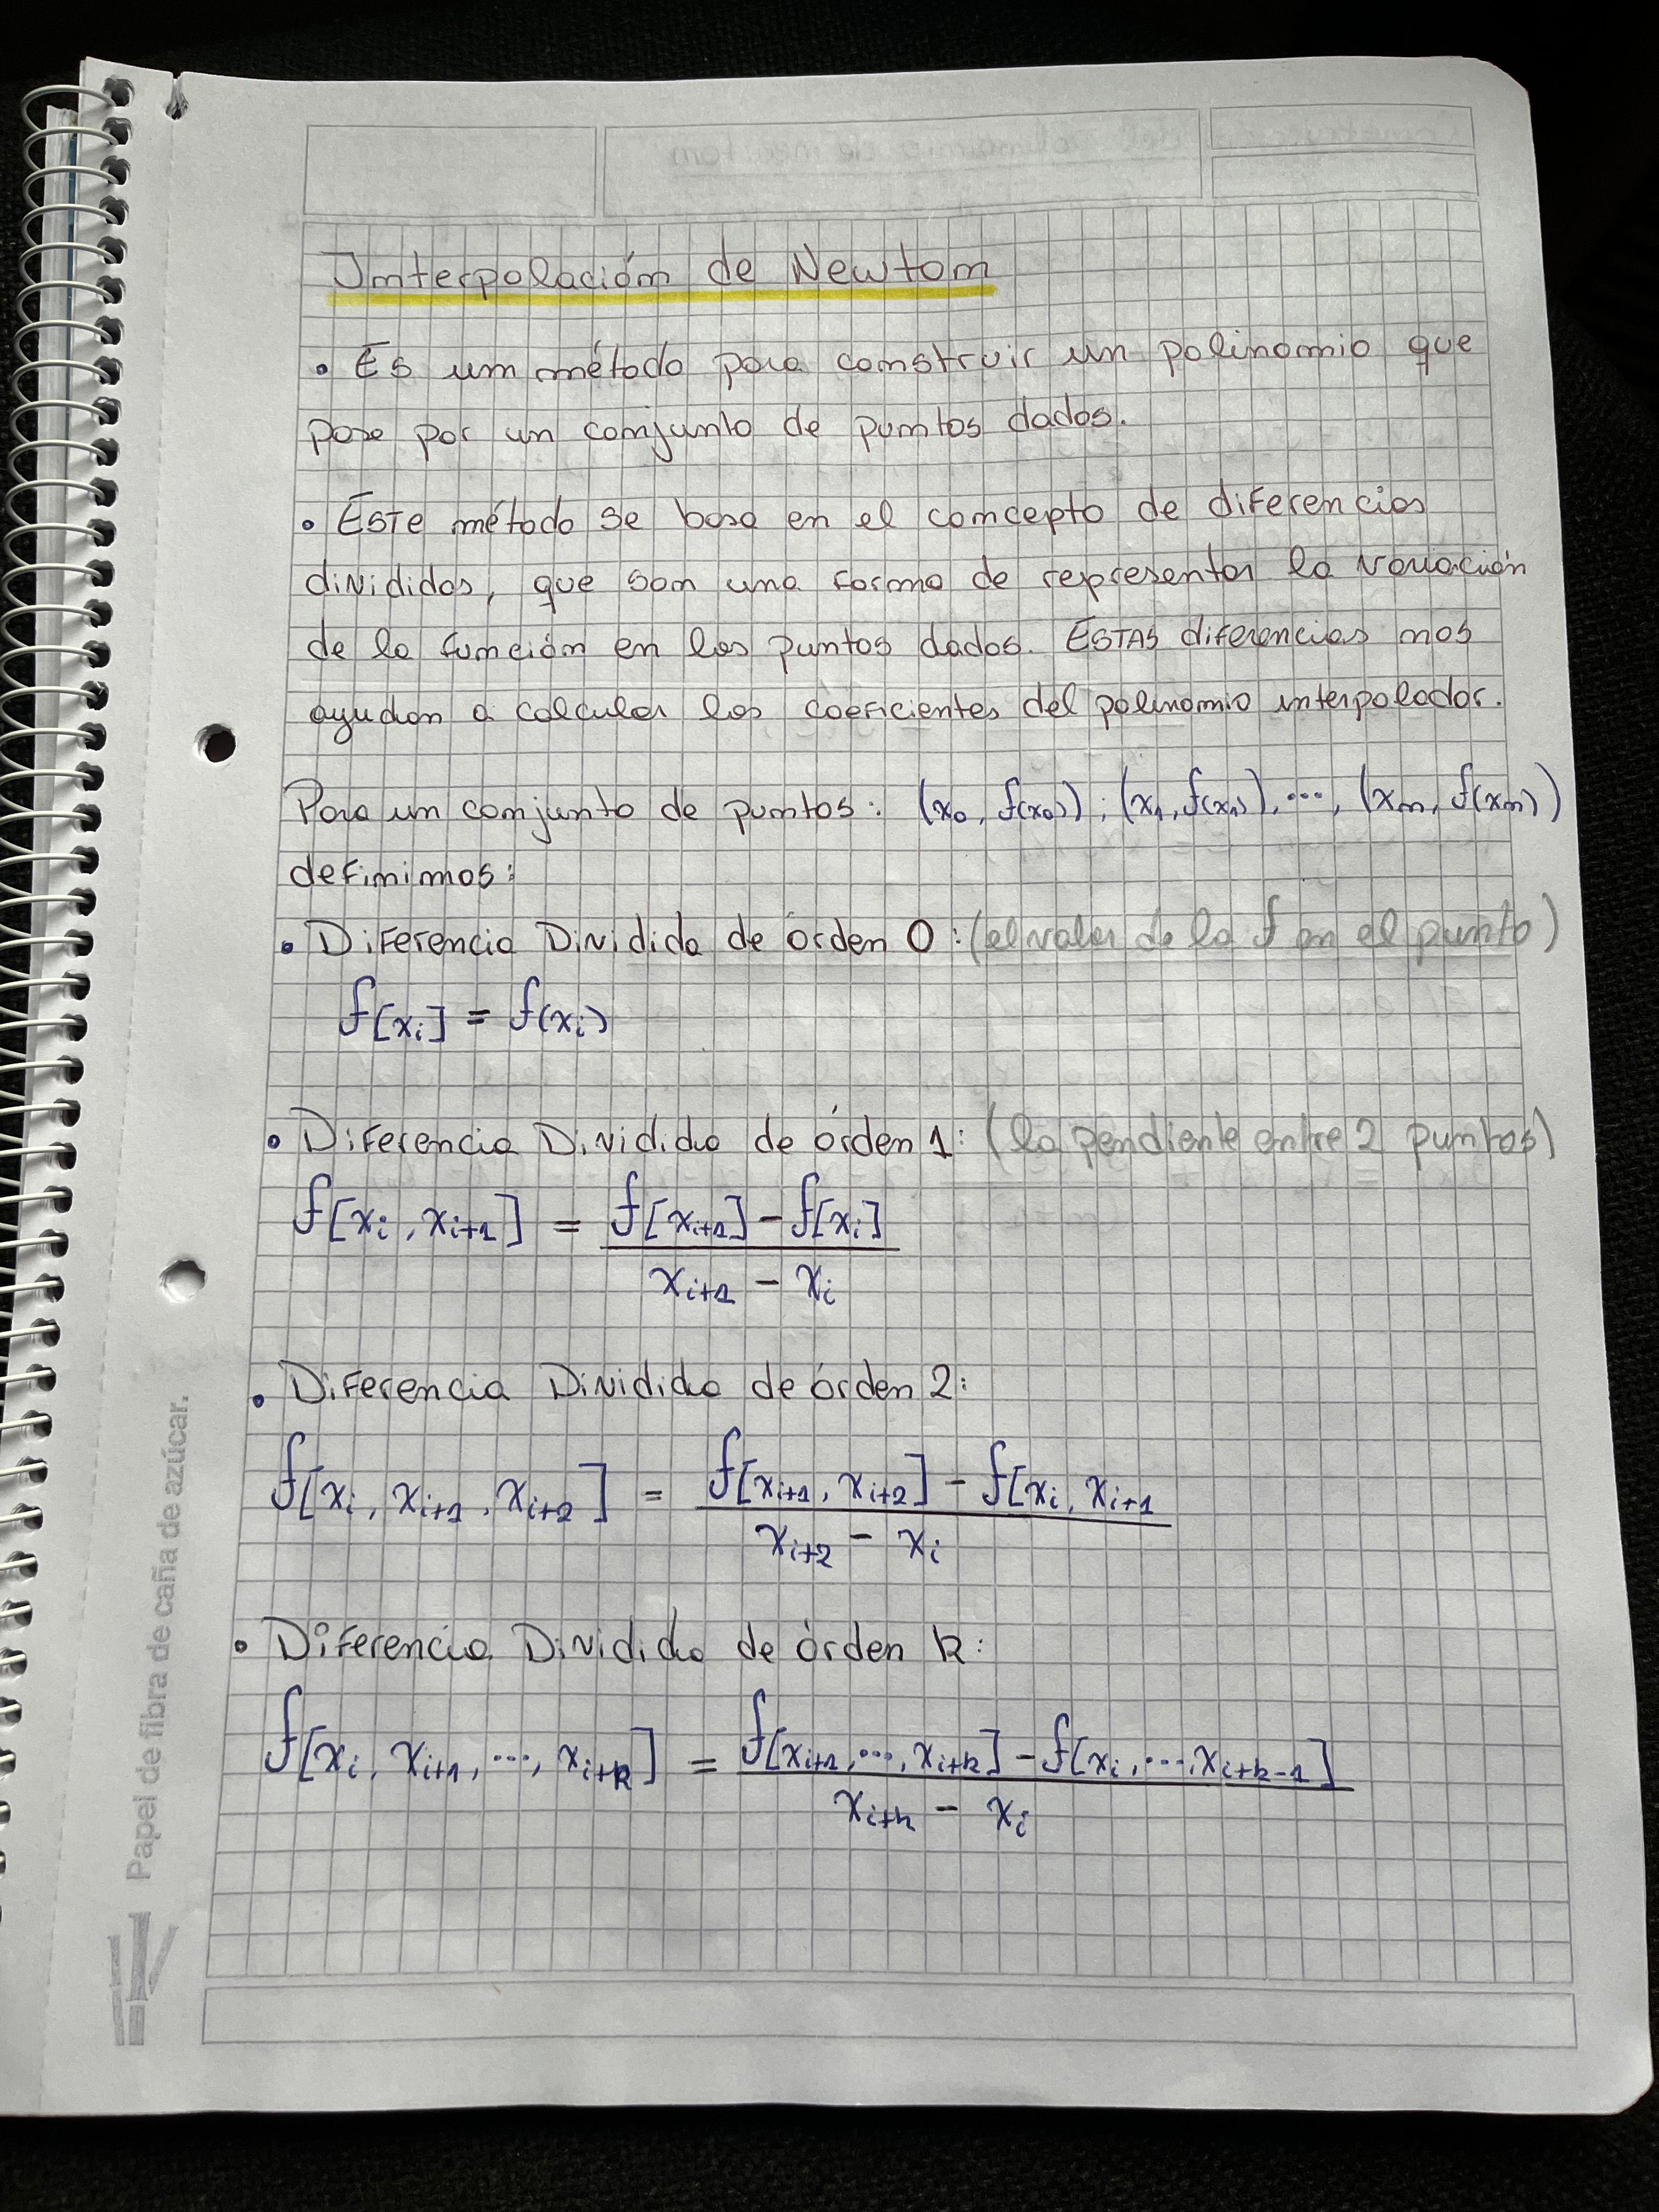 Interpolación de Newton
• Es un método para construir un polinomio que
pase por un conjunto de puntos dados.
• Este método se basa en el concepto de diferencias
divididas, que son una forma de representar la variación
de la función en los puntos dados. ESTAS diferencias nos
ayudan a calcular los coeficientes del polinomio interpolador.
Para un conjunto de puntos: (x₀, f(x₀)), (x₁, f(x₁)), ..., (xₙ, f(xₙ))
definimos:
• Diferencia Dividida de órden 0: (el valor de la f en el punto)
f[xᵢ] = f(xᵢ)
• Diferencia Dividida de órden 1: (la pendiente entre 2 puntos)
f[xᵢ, xᵢ₊₁] = (f[xᵢ₊₁] - f[xᵢ]) / (xᵢ₊₁ - xᵢ)
• Diferencia Dividida de órden 2:
f[xᵢ, xᵢ₊₁, xᵢ₊₂] = (f[xᵢ₊₁, xᵢ₊₂] - f[xᵢ, xᵢ₊₁) / (xᵢ₊₂ - xᵢ)
• Diferencia Dividida de órden k:
f[xᵢ, xᵢ₊₁, ..., xᵢ₊ₖ] = (f[xᵢ₊₁, ..., xᵢ₊ₖ] - f[xᵢ, ..., xᵢ₊ₖ₋₁]) / (xᵢ₊ₖ - xᵢ)
Papel de fibra de caña de azúcar.